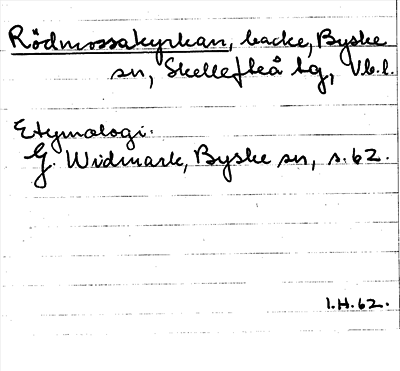 Rödmossakyrkan, backe, Byske
sn, Skellefteå tg, Vb.l.
Etymologi:
G. Widmark, Byske sn, s. 62.
I.H.62.